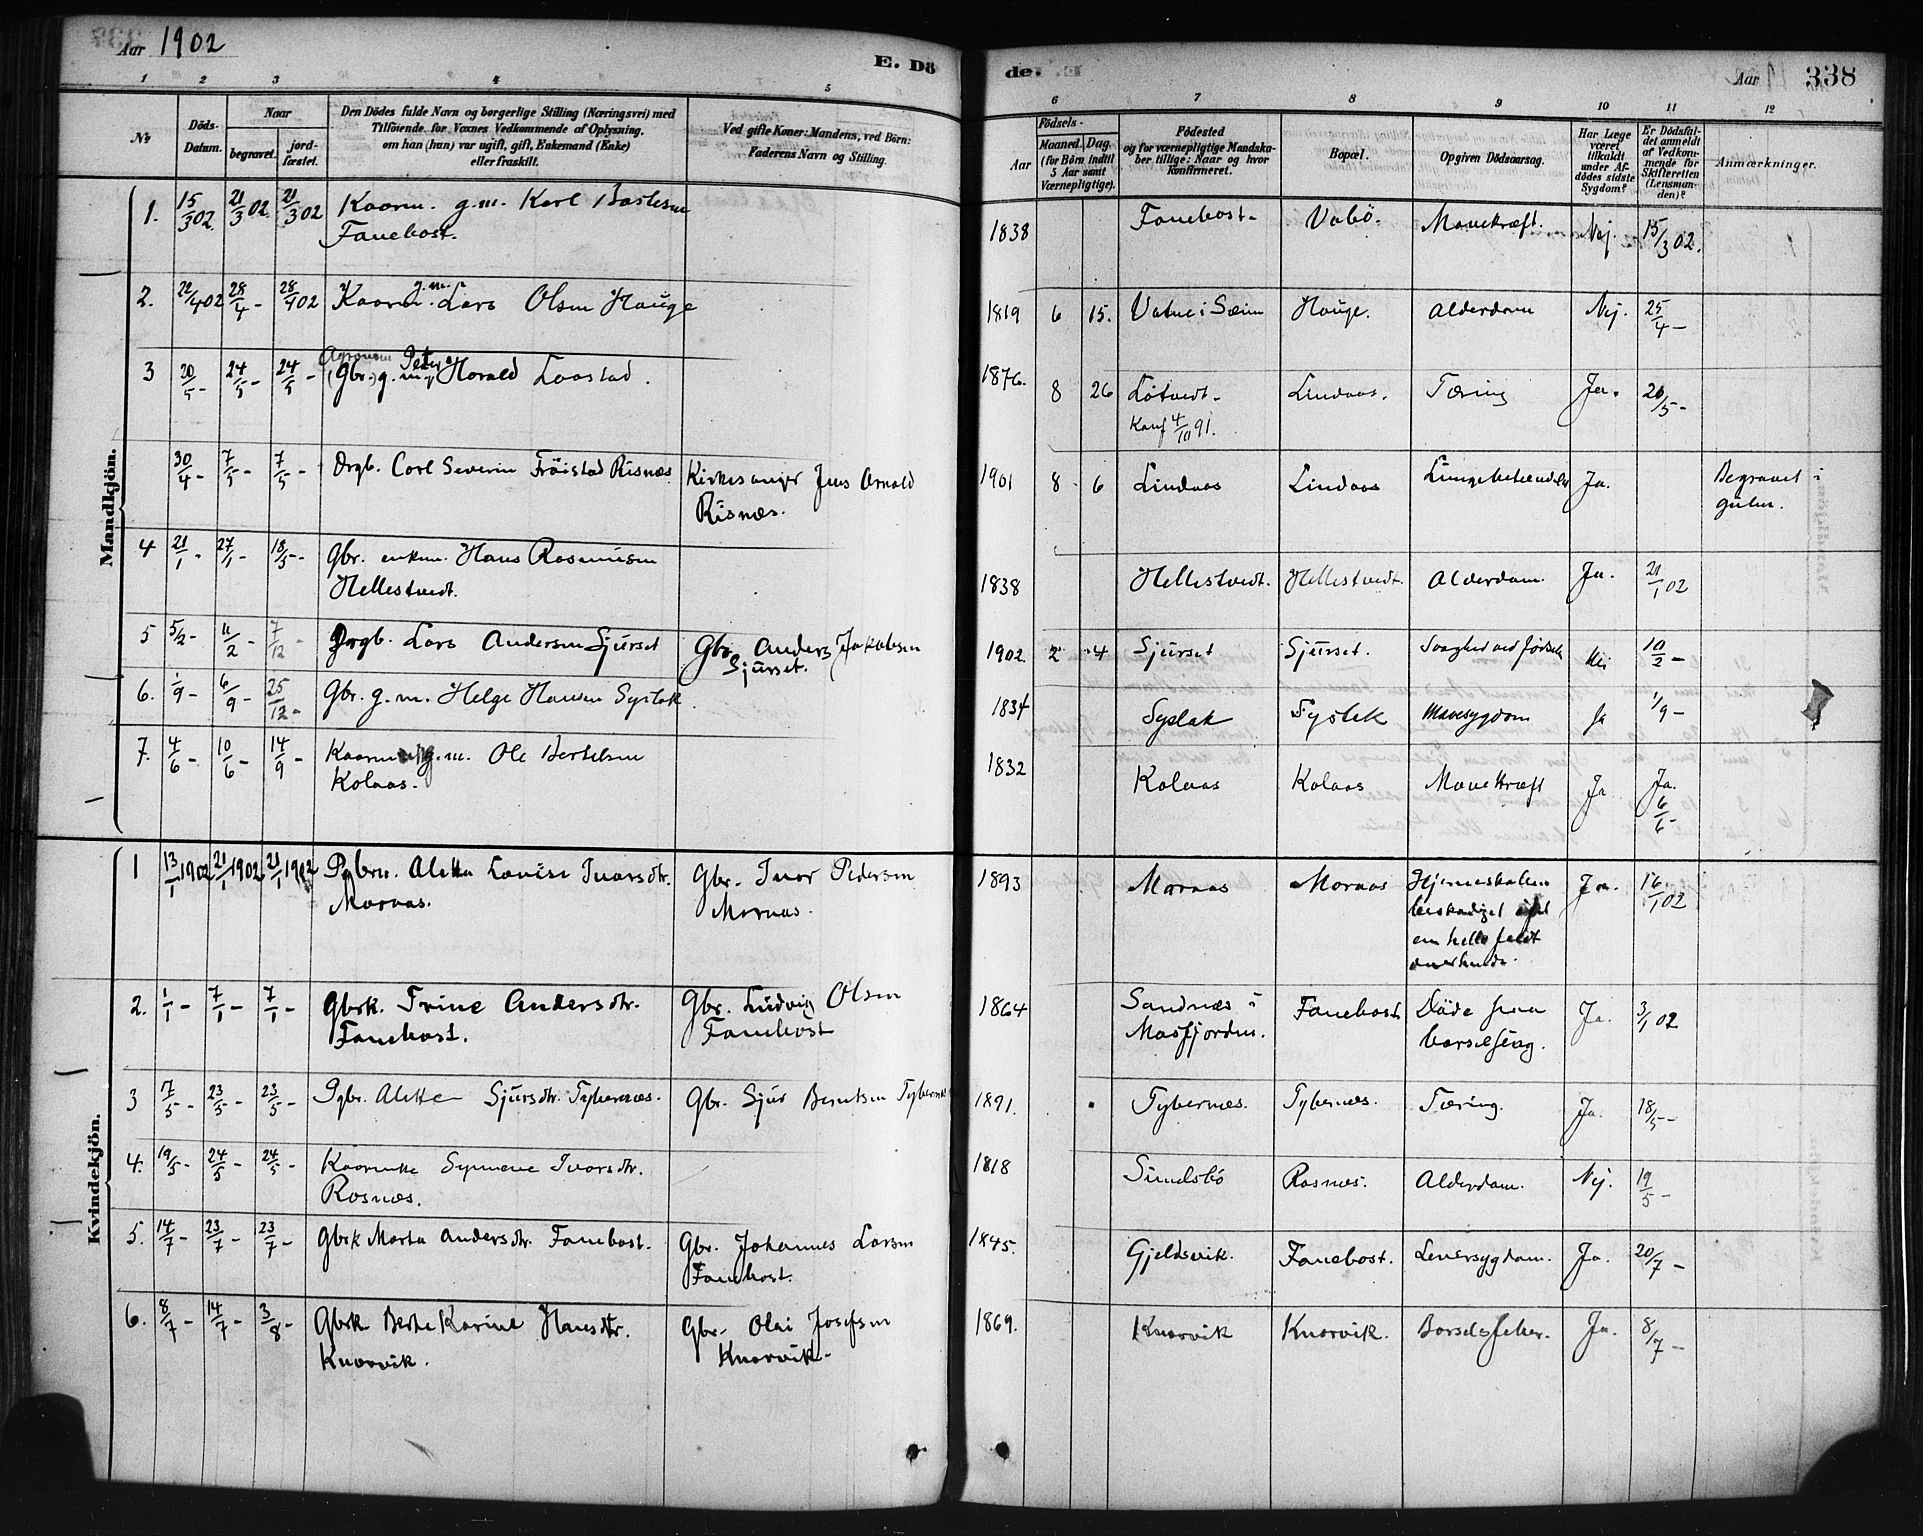 Aar 1902
E. Dö
de.
Aar 338
1 2 3 4 5
6 7 8 9 10 11 12
No
Döds-
Datum.
Naar
begravet.
jord-
fæstet.
Den Dödes fulde Navn og borgerlige Stilling (Næringsvei) med
Tilföiende for Voxnes Vedkommende af Oplysning,
om han (hun) var ugift, gift, Enkemand (Enke)
eller fraskilt.
Ved gifte Koner: Mandens, ved Börn:
Faderens Navn og Stilling.
Födsels-
Aar
Maaned.
Dag.
(for Börn indtil
5 Aar samt
Værnepligtige).
Födested
og for værnepligtige Mandska-
ber tillige: Naar og hvor
konfirmeret.
Bopæl.
Opgiven Dödsaarsag.
Har Læge
været
tilkaldt
under Af-
dödes sidste
Sygdom?
Er Dödsfal-
det anmeldt
af Vedkom-
mende for
Skifteretten
(Lensman-
den)?
Anmærkninger.
Mandkjön.
1. 15/3 02. 21/3 02. 21/3 02 Kaarm. g.m. Karl
Fanebost.
1838 Fanebost. Vabö. Mavekræft. Nej. 15/3 02.
2. 22/4 02 28/4 - 28/4 02 Kaarm. g.m. Lars Olsen Hauge
1819 6 15. Vatne i Sæim Hauge. Alderdom Nej. 25/4 -
3 20/5 - 24/5 - 24/5 - Agronom
(Gbr.) g.m. Peter Harald Loostad.
1876. 8 26 Lötvedt. Lindaas. Tæring Ja. 20/5 -
Konf 4/10 91.
30/4 - 7/5 - 7/5 - Drgb. Carl Severin Fröistad Risnæs Kirkesanger Jens Arnold
Risnæs.
1901 8 6 Lindaas Lindaas Lungebetændelse Ja. Begravet i
Gulen.
4 21/1 - 27/1 - 18/5 - Gbr. enkem. Hans Rasmusen
Hellestvedt.
1838 Hellestvedt. Hellestvedt. Alderdom. Ja. 21/1 02
5 5/2 - 11/2 - 7/12 - Drgb. Lars Andersen Sjurset Gbr. Anders Jakobsen
Sjurset.
1902. 2 4 Sjurset Sjurset. Svaghed ved födsel Nei 10/2 -
6. 1/9 - 6/9 - 25/12 - Gbr. g.m. Helge Hansen Syslak
1834 Syslak Syslak Mavesygdom Ja 1/9 -
7. 4/6 - 10/6 - 14/9 - Kaarm. g.m. Ole Bertelsen
Kolaas.
1832 Kolaas Kolaas Mavekræft Ja Ja.
6/6 -
Kvindekjön.
1 13/1 1902 21/1 1902 21/1 1902 Pgbrn. Aletta Lovise Ivarsdtr.
Moraas.
Gbr. Ivar Pedersen
Moraas.
1893 Moraas Moraas Hjerneskallen
beskadiget
en helle faldt
Ja. 16/1 02
2. 1/1 - 7/1 - 7/1 - Gbrk. Trine Andersdtr.
Fanebost.
Gbr. Ludvig Olsen
Fanebost
1864 Sandnæs i
Masfjorden.
Fanebost Döde paa
barselseng.
Ja. 3/1 02
3 7/5 - 23/5 - 23/5 - Pgbr. Alette Sjursdtr. Tybernæs. Gbr. Sjur Berntsen Tybernæs
1891. Tybernæs. Tybernæs. Tæring. Ja. 18/5 -
4. 19/5 - 24/5 - 24/5 - Kaarenke Synneve Ivarsdtr.
Rosnæs.
1818 Sundsbö Rosnæs. Alderdom. Nej. 19/5 -
5. 14/7 - 23/7 - 23/7 - Gbrk Marta Andersdtr. Fanebost. Gbr. Johannes Larsen
Fanebost.
1845. Gjeldsvik. Fanebost. Leversygdom. Ja. 20/7 -
6. 8/7 - 14/7 - 3/8 - Gbrk Berte Karine Hansdtr.
Knarvik.
Gbr. Olai Josefsen
Knarvik.
1869. Knarvik Knarvik. Barselsfeber. Ja. 8/7 -